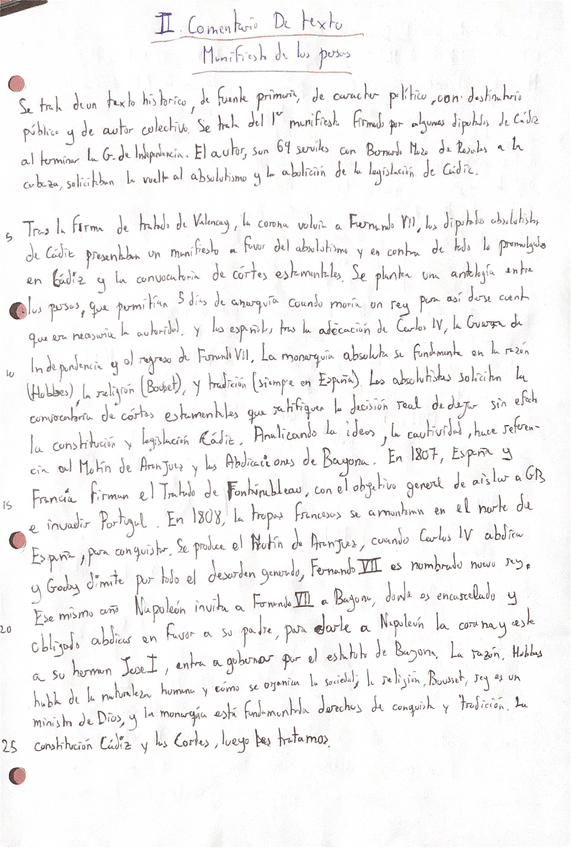 II. Comentario De texto
Manifiesto de los persas
Se trata de un texto histórico, de fuente primaria, de caracter político, con destinatario
público y de autor colectivo. Se trata del 1er manifiesto firmado por algunos diputados de Cádiz
al terminar la G. de Independencia. El autor, son 69 serviles con Bernardo Mozo de Rosales a la
cabeza, solicitaban la vuelta al absolutismo y la abolición de la legislación de Cádiz.
5 Tras la firma de tratado de Valençay, la corona volvía a Fernando VII, los diputados absolutistas
de Cádiz presentaban un manifiesto a favor del absolutismo y en contra de todo lo promulgado
en Cádiz y la convocatoria de córtes estamentales. Se plantea una antología entre
los persas, que permitían 5 días de anarquía cuando moría un rey para así darse cuenta
que era necesaria la autoridad. y los españoles, tras la abdicación de Carlos IV, la Guerra de
10 Independencia y el regreso de Fernando VII. La monarquía absoluta se fundamenta en la razón
(Hobbes), la religión (Bousset), y tradición (siempre en España). Los absolutistas solicitan la
convocatoria de córtes estamentales que ratifiquen la decisión real de dejar sin efecto
la constitución y legislación Cádiz. Analizando la ideas, la cautividad, hace referen-
cia al Motín de Aranjuez y las Abdicaciones de Bayona. En 1807, España y
15 Francia firman el Tratado de Fontainebleau, con el objetivo general de aislar a GB
e invadir Portugal. En 1808, la tropas francesas se amontonan en el norte de
España, para conquistar. Se produce el Motín de Aranjuez, cuando Carlos IV abdica
y Godoy dimite por todo el desorden generado, Fernando VII es nombrado nuevo rey.
Ese mismo año Napoleón invita a Fernando VII a Bayona, donde es encarcelado y
20 obligado abdicar en favor a su padre, para darle a Napoleón la corona y este
a su herman Jose I, entra a gobernar por el estatuto de Bayona. La razón, Hobbes
habla de la naturaleza humana y cómo se organiza la sociedad, la religión, Bousset, rey es un
ministro de Dios, y la monarquía está fundamentada derechos de conquista y tradición. La
25 constitución Cádiz y las Cortes, luego las tratamos.